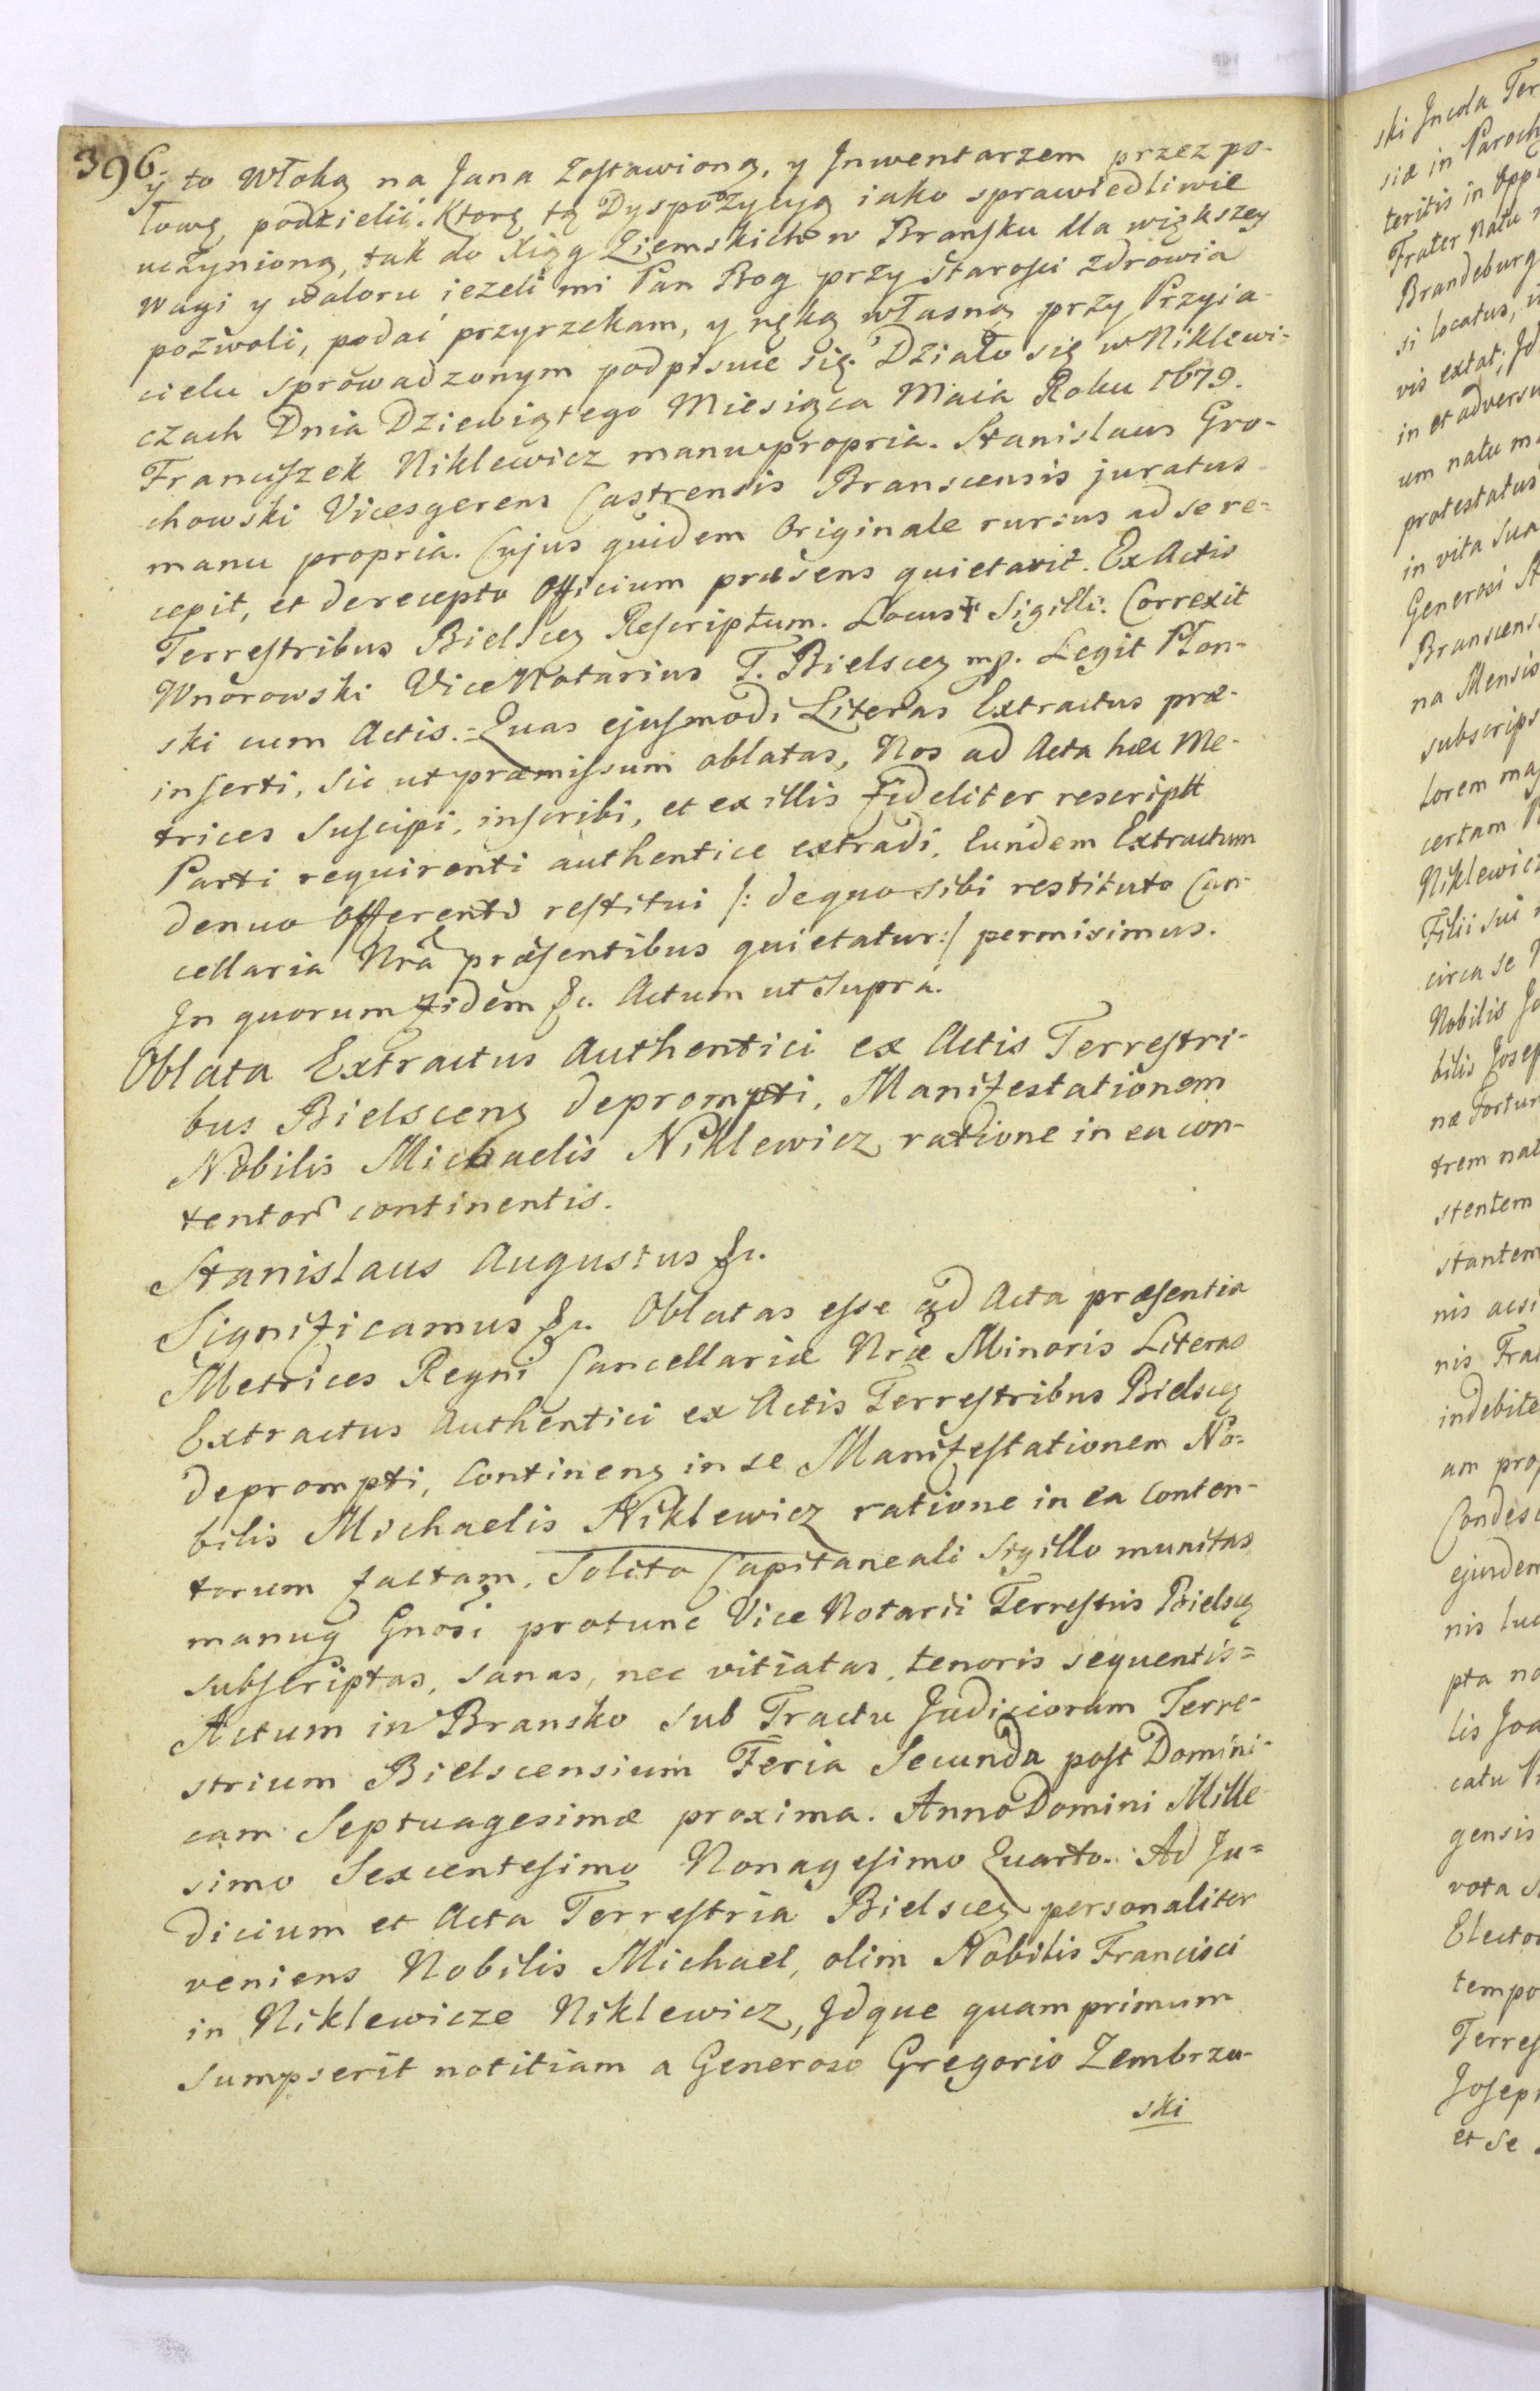 396.
y to Włoką na Jana zostawioną, y Jnwentarzem przez po-
łowę, podzielić. Ktorę tą Dyspozycyą iako sprawiedliwie
uczynioną, tak do Xiąg Ziemskich w Bransku dla większey
wagi y waloru ieżeli mi Pan Bog przy starości zdrowia
pozwoli, podać przyrzekam, y ręką własną przy Przyia-
cielu sprowadzonym podpisuię się. Działo się w Niklewi-
czach Dnia Dziewiątego Miesiąca Maia Roku 1679.
Franciszek Niklewicz manu propria. Stanislaus Gro-
chowski Vicesgerens Castrensis Branscensis juratus
manu propria. Cujus quidem Originale rursus ad se re-
cepit, et de recepto Officium præsens quietavit. Ex Actis
Terrestribus Bielscen Rescriptum. Locus Sigilli. Correxit
Wnorowski ViceNotarius T. Bielscen mp. Legit Płon-
ski cum Actis.= Quas ejusmodi Literas Extractus præ-
inserti, sic ut præmissum oblatas, Nos ad Acta hæc Me-
trices suscipi, inscribi, et ex illis fideliter rescriptt
Parti requirenti authentice extradi, Eundem Extractum
denuo Offerenti restitui /: de quo sibi restituto Can-
cellaria Nrã præsentibus quietatur:/ permisimus.
In quorum fidem &c. Actum ut supra.
Oblata Extractus Authentici ex Actis Terrestri-
bus Bielscen deprompti, Manifestationem
Nobilis Michaelis Niklewicz ratione in ea con-
tentor continentis.
Stanislaus Augustus &c.
Significamus &c. Oblatas esse ad Acta præsentia
Metrices Regni Cancellariæ Nræ Minoris Literas
Extractus Authentici ex Actis Terrestribus Bielscen
deprompti, Continen in se Manifestationem No-
bilis Michaelis Niklewicz ratione in ea conten-
torum factam, Solito Capitaneali Sigillo munitas
manuq Gnosi protunc Vice Notarii Terrestris Bielscen
subscriptas, sanas, nec vitiatas, tenoris sequentis=
Actum in Bransko sub Tractu Judiciorum Terre-
strium Bielscensium Feria Secunda post Domini-
cam Septuagesimæ proxima. Anno Domini Mille-
simo Sexcentesimo Nonagesimo Quarto. Ad Ju-
dicium et Acta Terrestria Bielscen personaliter
veniens Nobilis Michael, olim Nobilis Francisci
in Niklewicze Niklewicz, Idque quam primum
sumpserit notitiam a Generoso Gregorio Zembrzu-
ski
ski Incola Ter
siæ in Paroch
teritis in Opp
Frater natu
Brandeburg
si locatus,
vis extat, Id
in et adversu
um natu ma
protestatus
in vita sua
Generosi St
Branscens
na Mensis
subscrips
torem maj
certam
Niklewicz
Filii sui
circa se
Nobilis Jo
bilis Josep
næ Fortun
trem nat
stentem
stantem
nis acsi
nis Frat
indebite
am prop
Condesc
ejusdem
nis
pta no
lis Joa
catu
gensis
vota
Elector
tempo
Terres
Joseph
et se